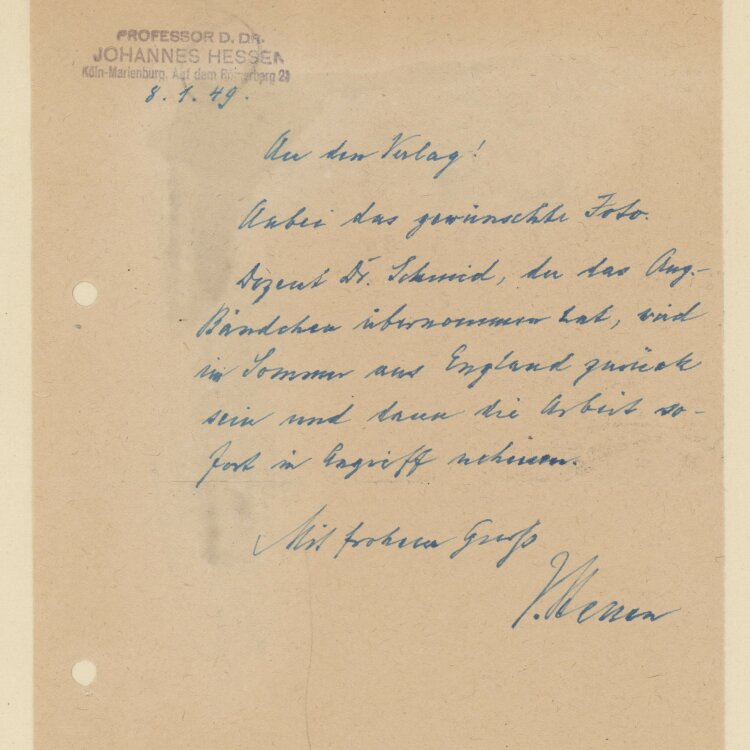 PROFESSOR D. DR.
JOHANNES HESSEN
Köln-Marienburg, Auf dem Römerberg 29
8. 1. 49.
An den Verlag!
Anbei das gewünschte Foto.
Dozent Dr. Schmid, der das Aug.-
Bändchen übernommen hat, wird
im Sommer aus England zurück
sein und dann die Arbeit so-
fort in Angriff nehmen.
Mit frohem Gruß
J. Hessen